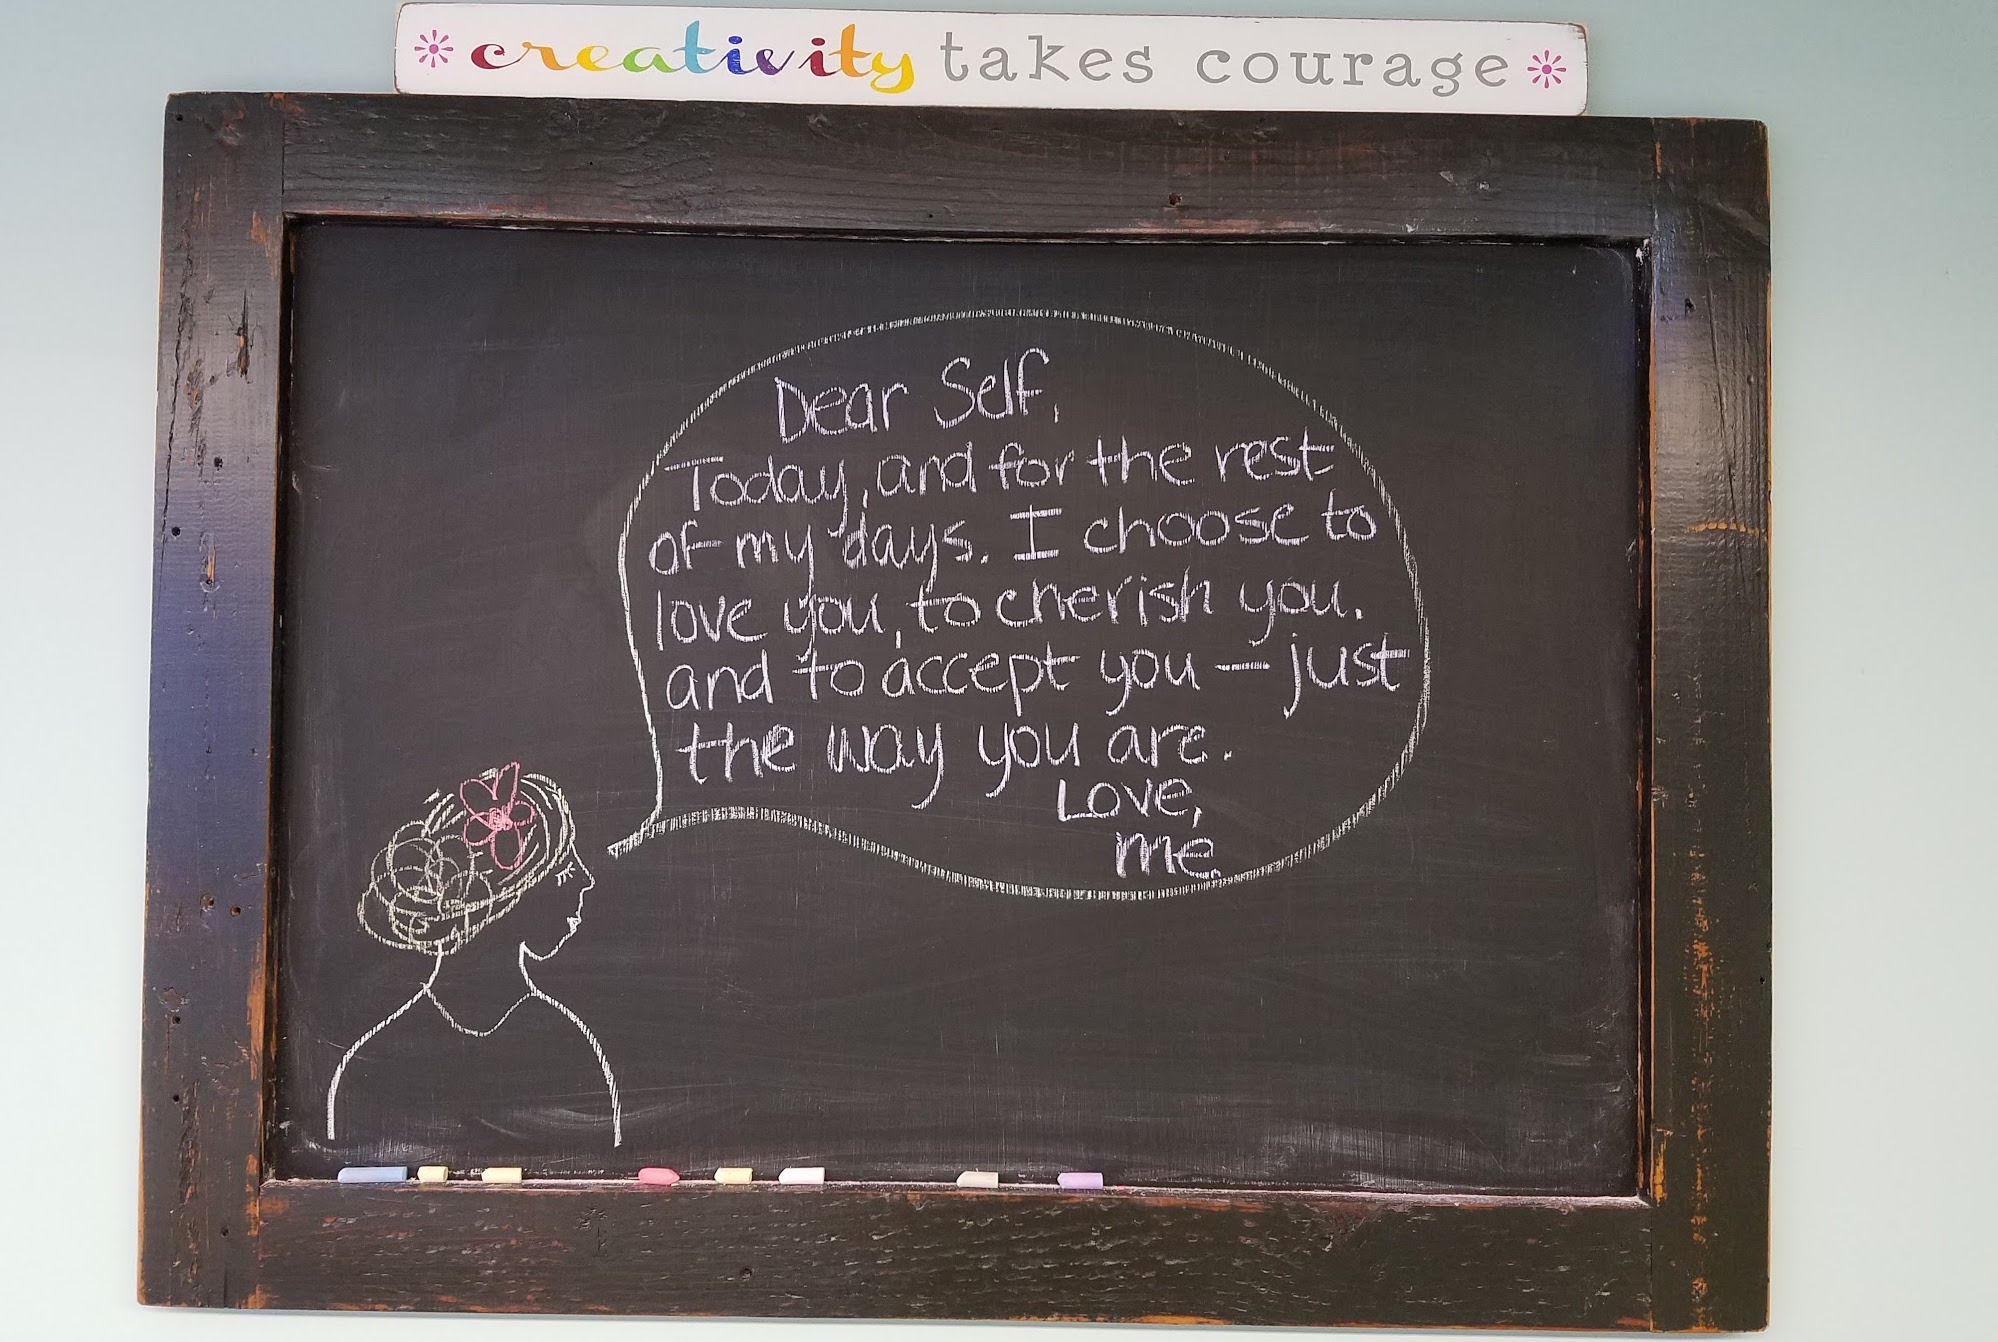 creativity takes courage
Dear Self,
Today, and for the rest
of my days. I choose to
love you, to cherish you.
and to accept you — just
the way you are.
Love,
me.